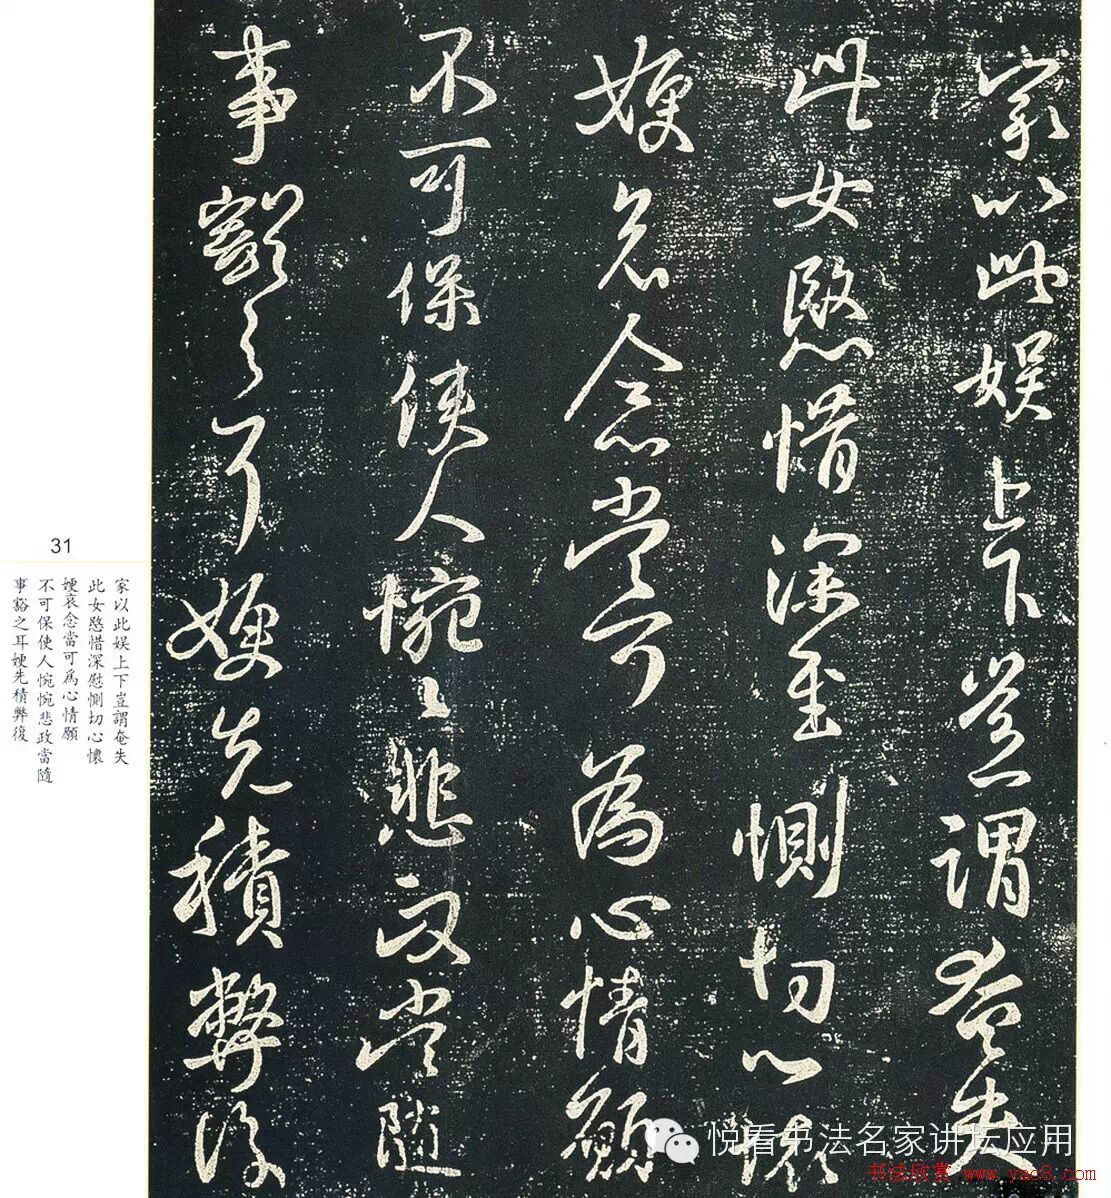 家以此娱上下豈謂奄失
此女愍惜深至惻切心懷
㛐哀念當可為心情願
不可保使人惋〻悲政當隨
事豁之耳㛐先積弊復
31
家以此娱上下豈謂奄失
此女愍惜深慰惻切心懷
㛐哀念當可為心情願
不可保使人惋惋悲政當隨
事豁之耳㛐先積弊復
悦看书法名家讲坛应用
书法欣赏 www.yac8.com